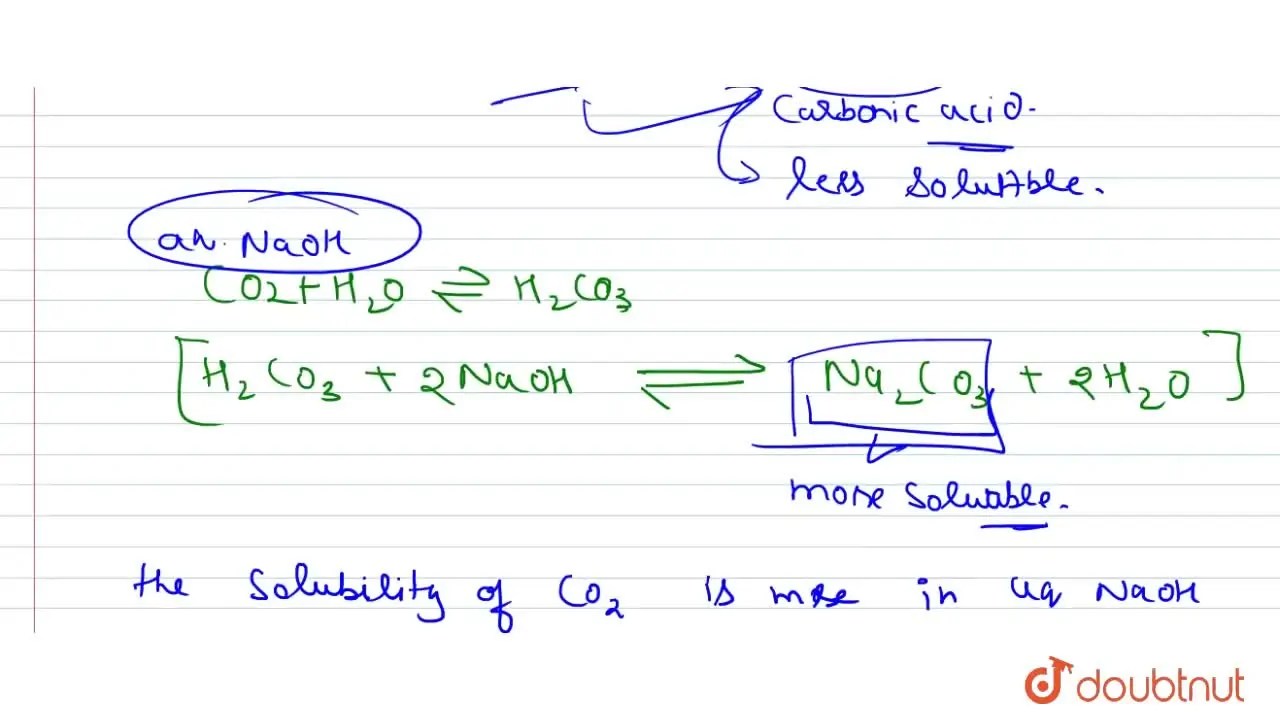 Carbonic acid.
less soluable.
aq. NaOH
CO2 + H₂O ⇌ H₂CO₃
[H₂CO₃ + 2NaOH ⇌ Na₂CO₃ + 2H₂O]
more soluable.
the solubility of CO₂ is more in aq NaOH
doubtnut